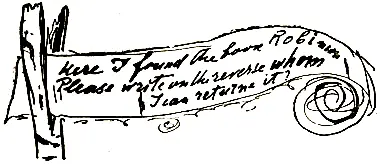 Here I found the book Robinson
Please write on the reverse whom
I can returne it?